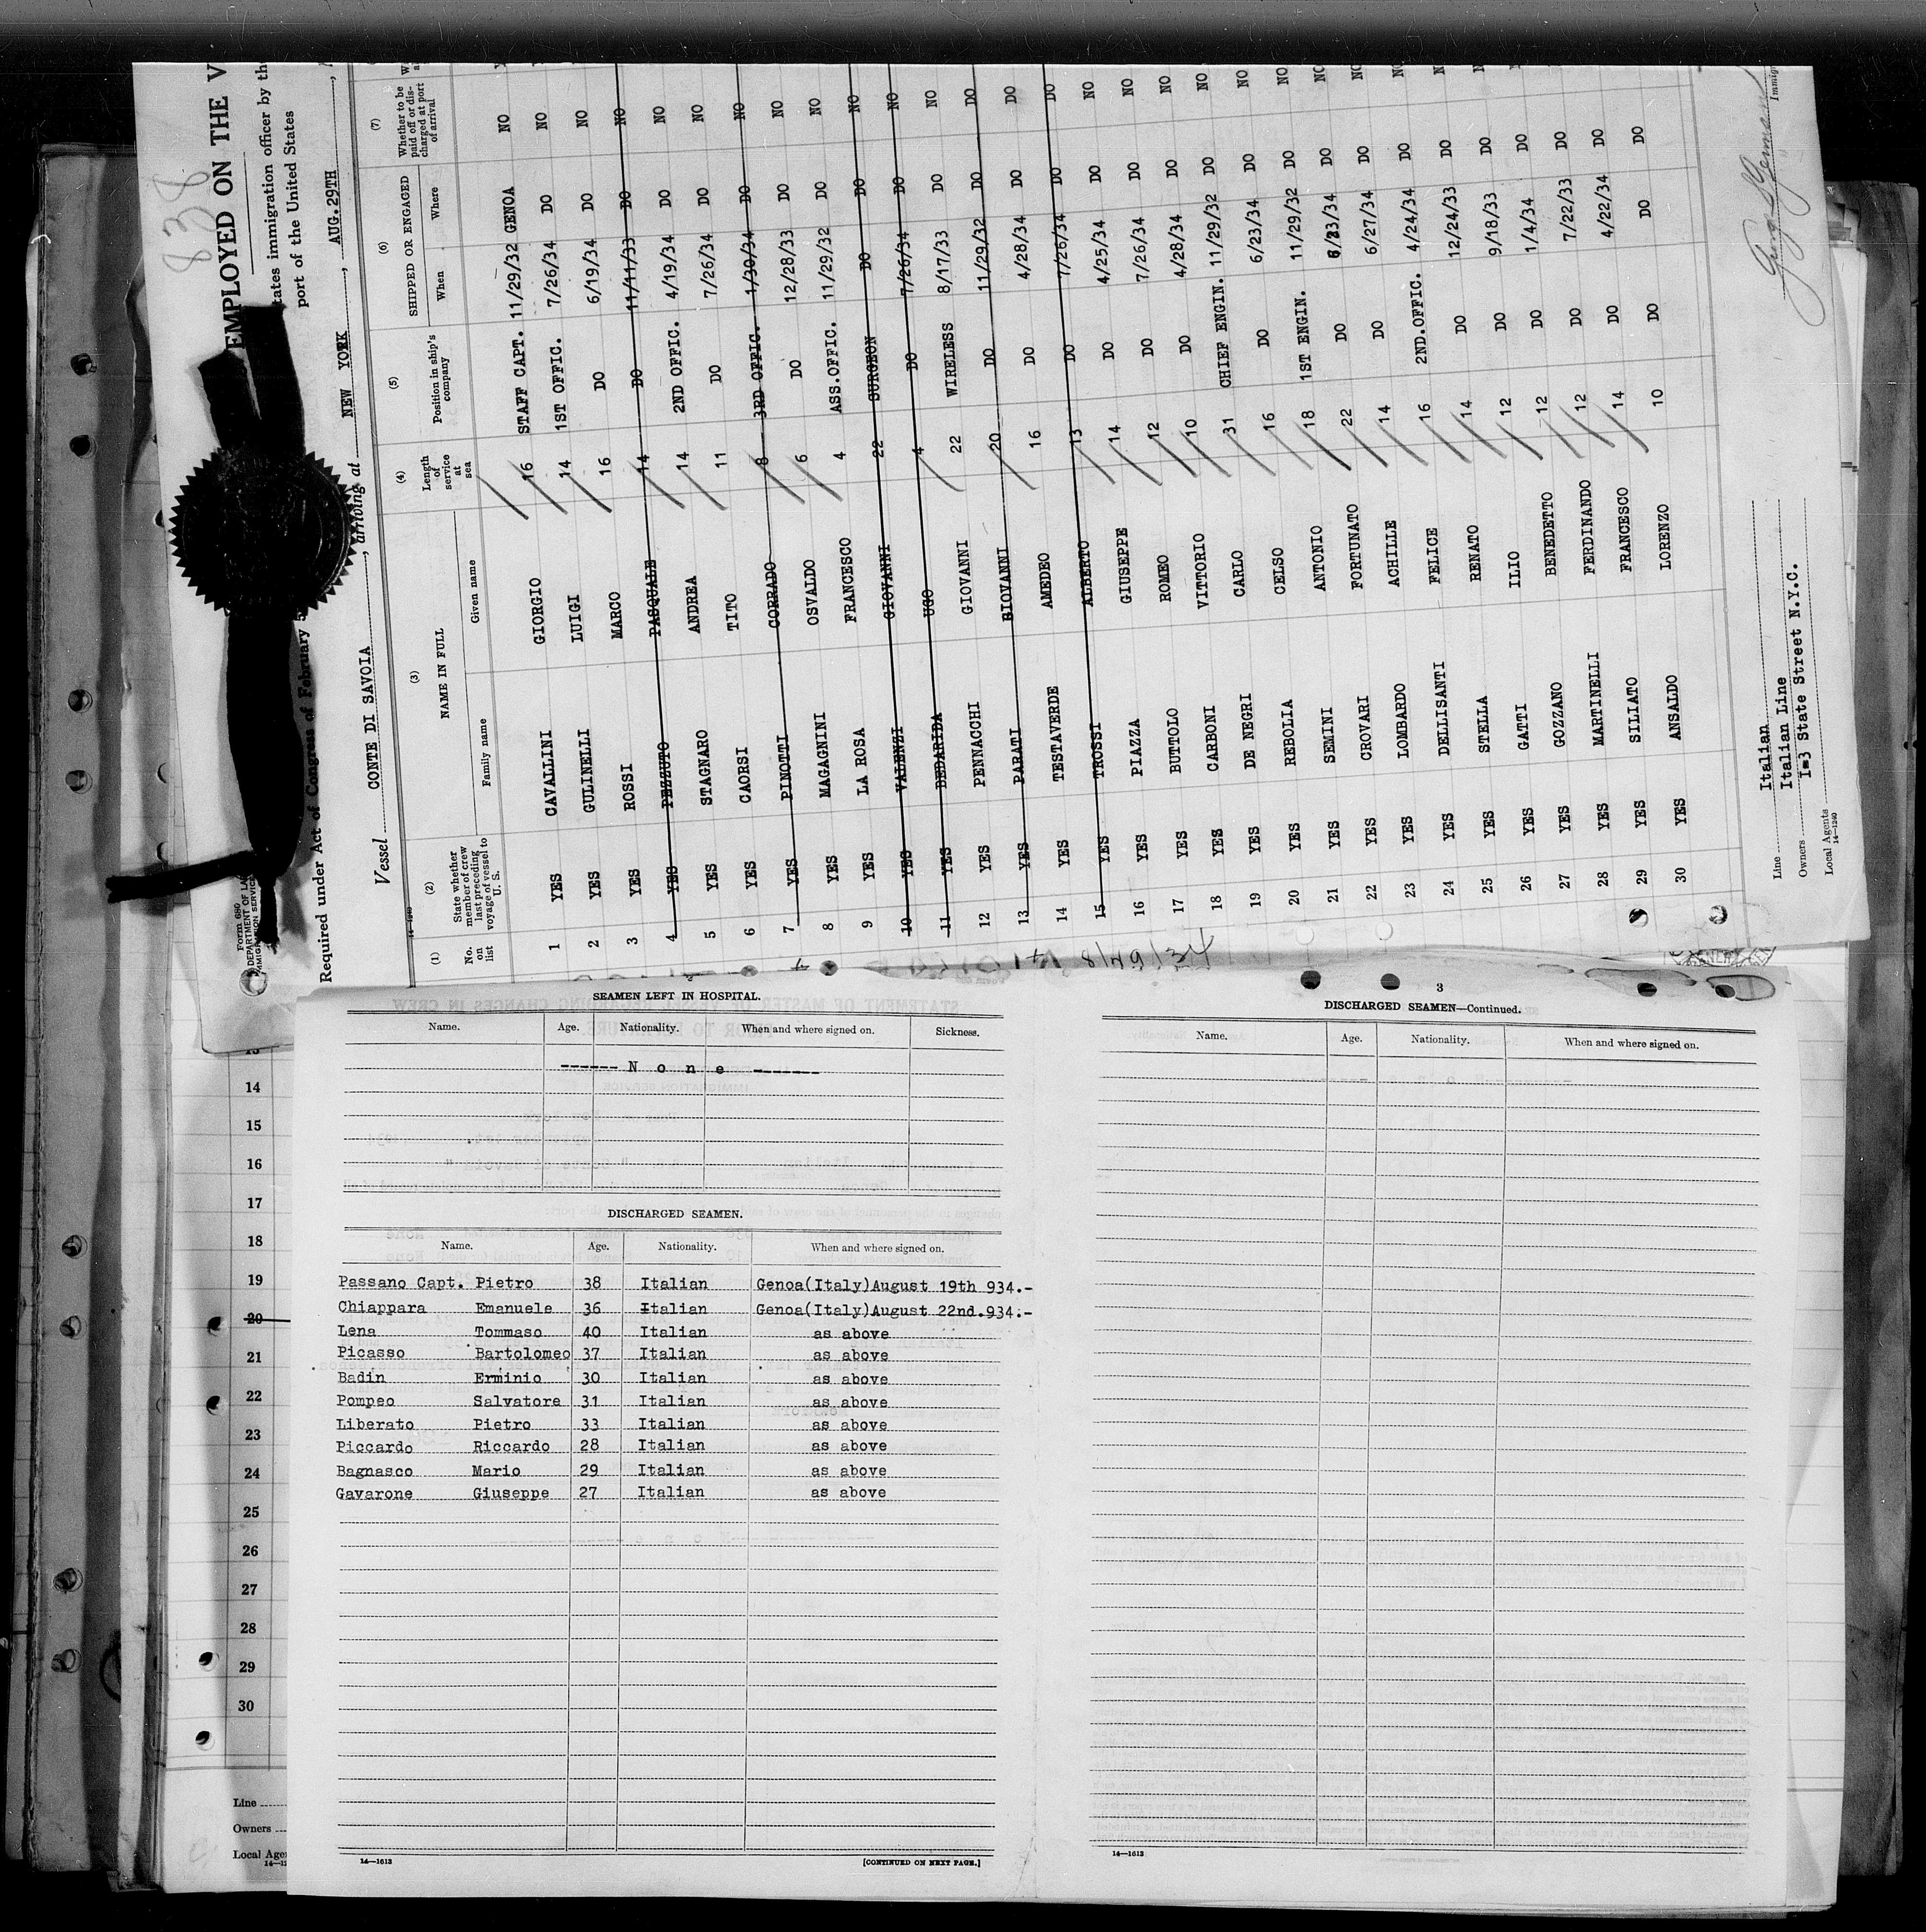 838
EMPLOYED ON THE V
tates immigration officer by th
port of the United States
Required under Act of Congress of February 5
Form 680
DEPARTMENT OF LA
IMMIGRATION SERVICE
Vessel CONTE DI SAVOIA, arriving at NEW YORK, AUG.29TH
14-1240
(1) (2) (3) (4) (5) (6) (7)
No. on list
State whether member of crew last preceding voyage of vessel to U. S.
NAME IN FULL
Family name Given name
Length of service at sea
Position in ship's company
SHIPPED OR ENGAGED
When Where
Whether to be paid off or discharged at port of arrival
1 YES CAVALLINI GIORGIO 16 STAFF CAPT. 11/29/32 GENOA NO
2 YES GULINELLI LUIGI 14 1ST OFFIC. 7/26/34 DO NO
3 YES ROSSI MARCO 16 DO 6/19/34 DO NO
4 YES PEZZUTO PASQUALE 14 DO 11/11/33 DO NO
5 YES STAGNARO ANDREA 14 2ND OFFIC. 4/19/34 DO NO
6 YES CAORSI TITO 11 DO 7/26/34 DO NO
7 YES PINOTTI CORRADO 8 3RD OFFIC. 1/30/34 DO NO
8 YES MAGAGNINI OSVALDO 6 DO 12/28/33 DO NO
9 YES LA ROSA FRANCESCO 4 ASS.OFFIC. 11/29/32 DO NO
10 YES VALENZI GIOVANNI 22 SURGEON DO DO NO
11 YES BEDARIDA UGO 4 DO 7/26/34 DO NO
12 YES PENNACCHI GIOVANNI 22 WIRELESS 8/17/33 DO NO
13 YES PARATI GIOVANNI 20 DO 11/29/32 DO DO
14 YES TESTAVERDE AMEDEO 16 DO 4/28/34 DO DO
15 YES TROSSI ALBERTO 13 DO 7/26/34 DO DO
16 YES PIAZZA GIUSEPPE 14 DO 4/25/34 DO NO
17 YES BUTTOLO ROMEO 12 DO 7/26/34 DO NO
18 YES CARBONI VITTORIO 10 DO 4/28/34 DO NO
19 YES DE NEGRI CARLO 31 CHIEF ENGIN. 11/29/32 DO NO
20 YES REBOLIA CELSO 16 DO 6/23/34 DO NO
21 YES SEMINI ANTONIO 18 1ST ENGIN. 11/29/32 DO NO
22 YES CROVARI FORTUNATO 22 DO 6/23/34 DO NO
23 YES LOMBARDO ACHILLE 14 DO 6/27/34 DO NO
24 YES DELLISANTI FELICE 16 2ND.OFFIC. 4/24/34 DO NO
25 YES STELLA RENATO 14 DO 12/24/33 DO
26 YES GATTI ILIO 12 DO 9/18/33 DO
27 YES GOZZANO BENEDETTO 12 DO 1/4/34 DO
28 YES MARTINELLI FERDINANDO 12 DO 7/22/33 DO
29 YES SILIATO FRANCESCO 14 DO 4/22/34 DO
30 YES ANSALDO LORENZO 10 DO DO DO
Line Italian
Owners Italian Line
Local Agents 1=3 State Street N.Y.C.
14-1240
SEAMEN LEFT IN HOSPITAL.
Name. Age. Nationality. When and where signed on. Sickness.
------ N o n e -------
DISCHARGED SEAMEN.
Name. Age. Nationality. When and where signed on.
Passano Capt. Pietro 38 Italian Genoa(Italy)August 19th 934.-
Chiappara Emanuele 36 Italian Genoa(Italy)August 22nd.934.-
Lena Tommaso 40 Italian as above
Picasso Bartolomeo 37 Italian as above
Badin Erminio 30 Italian as above
Pompeo Salvatore 31 Italian as above
Liberato Pietro 33 Italian as above
Piccardo Riccardo 28 Italian as above
Bagnasco Mario 29 Italian as above
Gavarone Giuseppe 27 Italian as above
14—1613
[CONTINUED ON NEXT PAGE.]
3
DISCHARGED SEAMEN—Continued.
Name. Age. Nationality. When and where signed on.
14—1613
14
15
16
17
18
19
20
21
22
23
24
25
26
27
28
29
30
Line
Owners
Local Agen